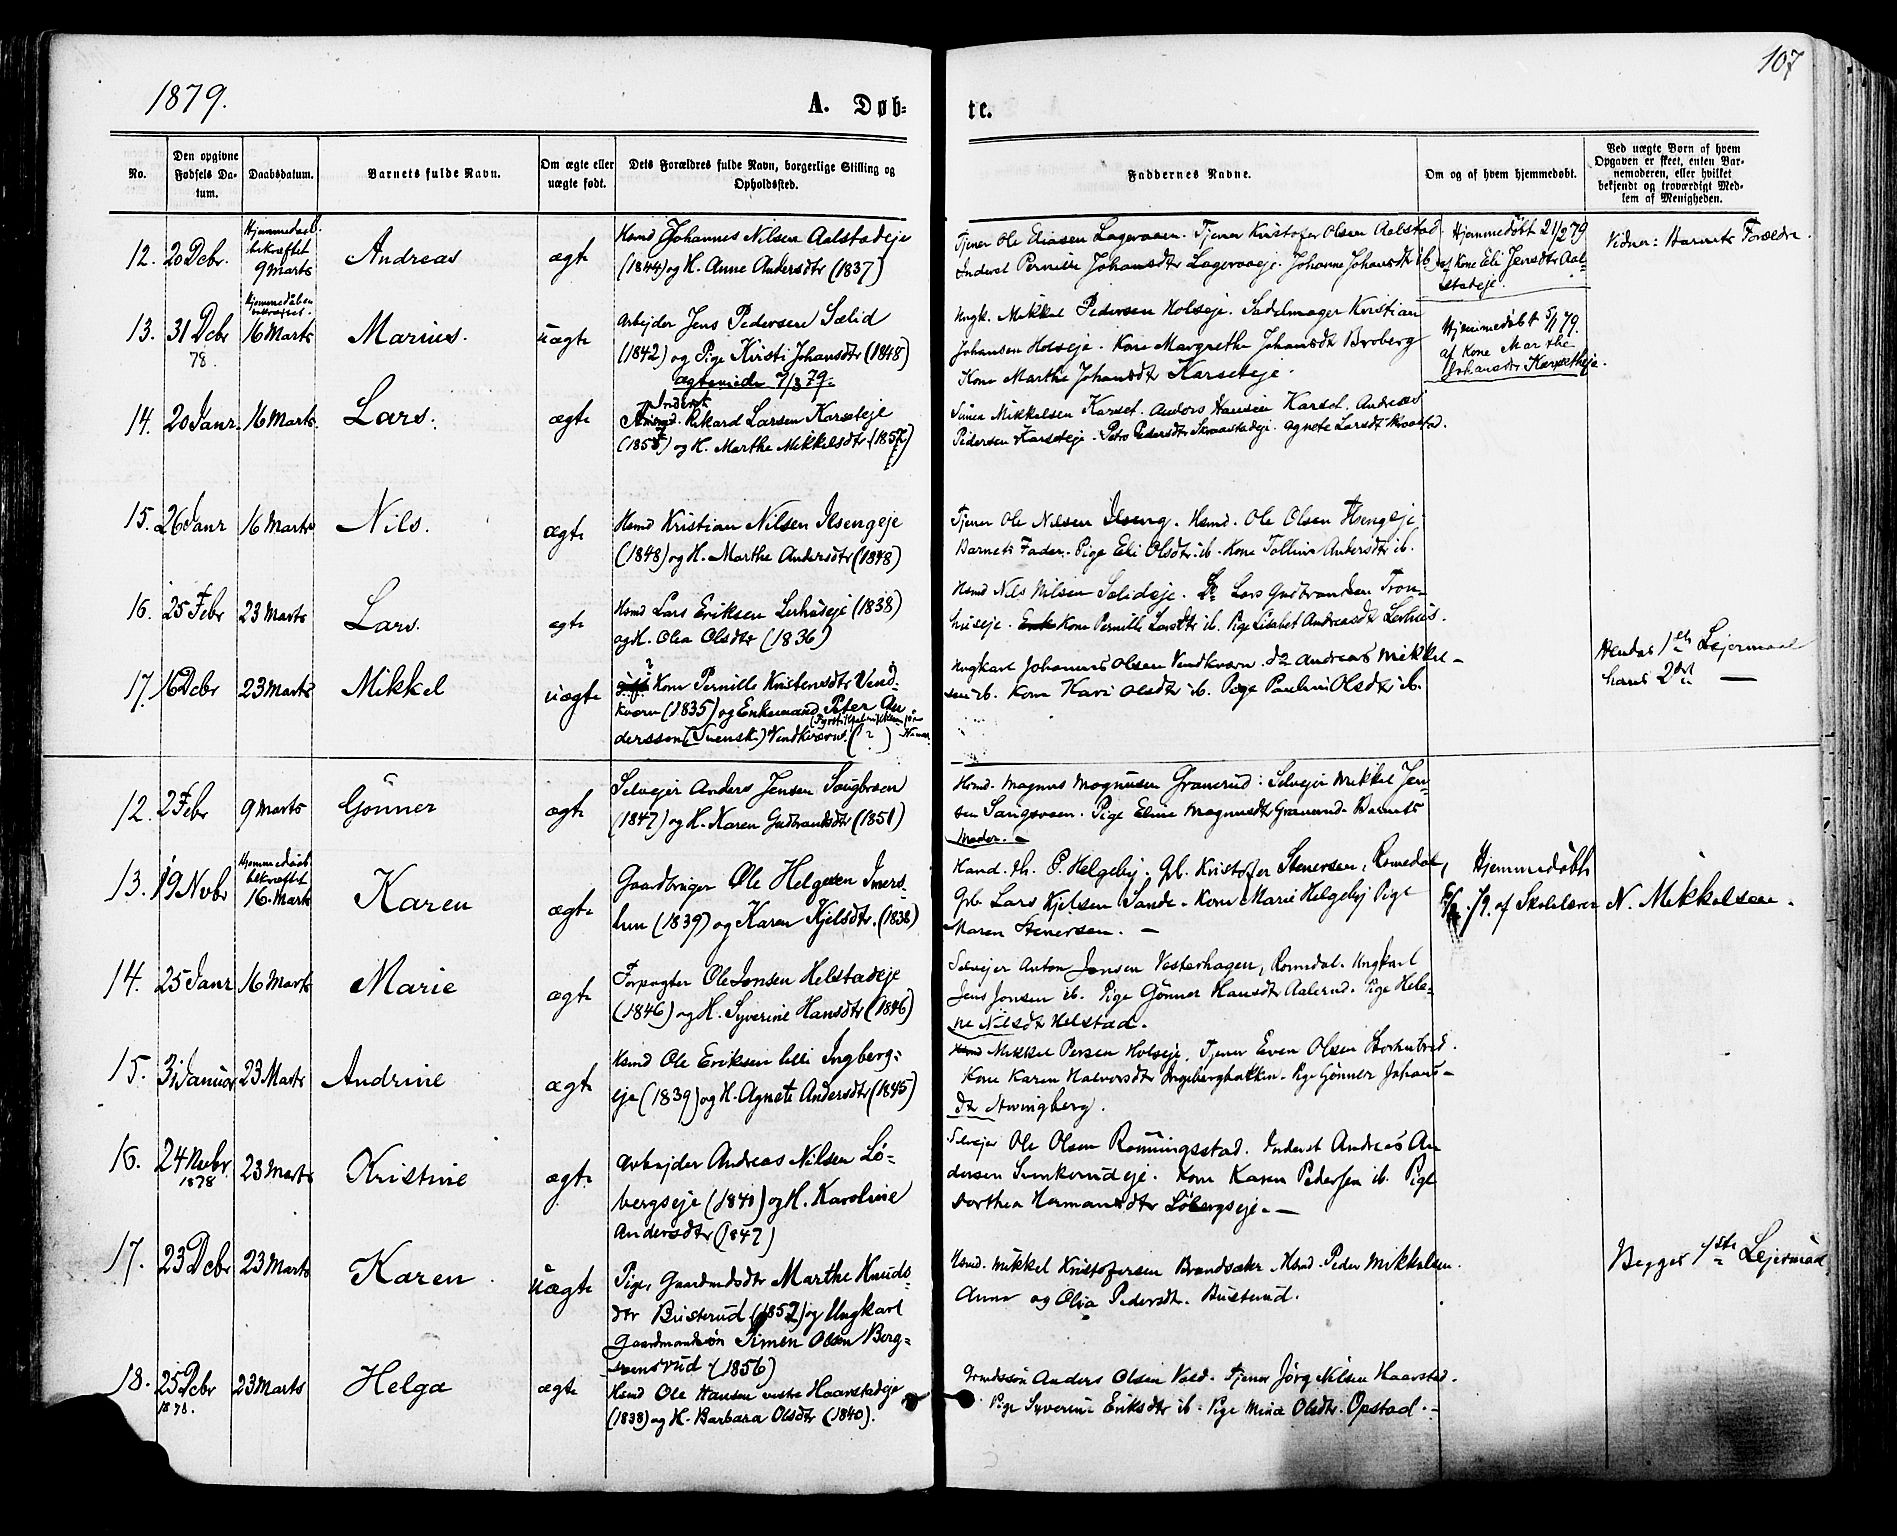 107
1879.
A. Døb=
te.
No.
Den opgivne Fødsels Da-
tum.
Daabsdatum.
Barnets fulde Navn.
Om ægte eller
uægte født.
Dets Forældres fulde Navn, borgerlige Stilling og
Opholdssted.
Faddernes Navne.
Om og af hvem hjemmedøbt.
Ved uægte Børn af hvem
Opgaven er skeet, enten Bar-
nemoderen, eller hvilket
bekjendt og troværdigt Med-
lem af Menigheden.
12. 20 Dcbr. Hjemmedaab
bekræftet
9 Marts Andreas ægte
Hsmd Johannes Nilsen Aalstadeje
(1844) og H. Anne Andersdtr (1837)
Tjener Ole Eliasen Lageraaen. Tjener Kristofer Olsen Aalstad
Inderst Pernille Johansdtr Lageraaeje. Johanne Johansdtr ib
Hjemmedøbt 21/2 79
af Kone Eli Jensdtr Aal-
stadeje.
Vidner: Barnets Forældre.
13. 31 Dcbr
78. 16 Marts Marius. uægte
Arbejder Jens Pedersen Sælid
(1842) og Pige Kirsti Johansdtr (1848)
Ungk. Mikkel Pedersen Holseje. Sadelmager Kristian
Johansen Holseje. Kone Margrethe Johansdtr Broberg
Kone Marthe Johansdtr Karseteje.
Hjemmedøbt 5/1 79.
af Kone Marthe
Johansdtr Karsetheje.
14. 20 Janr 16 Marts Lars. ægte
Inderst
Rikard Larsen Karseteje
og H. Marthe Mikkelsdtr (1857)
Simen Mikkelsen Karset. Anders Hansen Karset. Andreas
Pedersen Karseteje. Petro Pedersdtr Skraastadeje. Agnete Larsdtr Skraastad.
15. 26 Janr 16 Marts Nils. ægte
Hsmd Kristian Nilsen Ilsengeje
(1848) og H. Marthe Andersdtr (1848)
Tjener Ole Nilsen Ilseng. Hsmd. Ole Olsen Ilsengeje
Barnets Fader. Pige Eli Olsdtr ib. Kone Tolline Andersdtr ib.
16. 25 Febr 23 Marts Lars. ægte
Hsmd Lars Eriksen Lerhuseje (1838)
og H. Olea Olsdtr (1836)
Hsmd Nils Nilsen Sælideje. Do Lars Gudbrandsen Tron-
huseje. Kone Pernille Larsdtr ib. Pige Lisabet Andreasdtr Lerhus.
17. 16 Dcbr 23 Marts Mikkel uægte
Kone Pernille Kristensdtr Vind-
kværn (1835) og Enkemand Peter An
dersson (Svensk) Vindkværn. (?)
Ungkarl Johannes Olsen Vindkværn. Do Andreas Mikkel-
sen ib. Kone Kari Olsdtr ib. Pige Pauline Olsdtr ib.
Hendes 1ste Lejermaal
hans 2det —
12. 2 Febr 9 Marts Gönner ægte
Selvejer Anders Jensen Saugbraaen
(1847) og H. Karen Gudbrandsdtr (1851)
Hsmd. Magnus Magnusen Granerud. Selvejer Mikkel Jen
sen Sangsvaen. Pige Eline Magnusdtr Granerud. Barnets
Moder. —
13. 19 Novbr Hjemmedaab
bekræftet
16. Marts Karen ægte
Gaardbruger Ole Helgesen Imers-
lun (1839) og Karen Kjelsdtr. (1838)
Kand. th. P. Helgeby. Gb. Kristofer Stenersen, Romedal,
Gb. Lars Kjelsen Sande. Kone Marie Helgeby Pige
Maren Stenersen. —
Hjemmedøbt
79. af Skolelærer N. Mikkelsen.
14. 25 Janr 16 Marts Marie ægte
Forpagter Ole Jonsen Helstadeje
(1846) og H. Syverine Hansdtr (1846)
Selvejer Anton Jensen Vesterhagen, Romedal. Ungkarl
Jens Jonsen ib. Pige Gönner Hansdtr Aalerud. Pige Hele-
ne Nilsdtr Helstad.
15. 31 Januar 23 Marts Andrine ægte
Hsmd Ole Eriksen lille Ingberg-
eje (1839) og H. Agnete Andersdtr (1845)
Mikkel Persen Holseje, Tjener Even Olsen
Kone Karen Halvorsdtr Ingebergbakken. Pige Gönner Johans-
dtr
16. 24 Nvbr
1878 23 Marts Kristine ægte
Arbejder Andreas Nilsen Lø-
bergseje (1840) og H. Karoline
Andersdtr (1847)
Selvejer Ole Olsen Rønningsstad. Inderst Andreas An
dersen Svenkerudeje. Kone Karen Pedersen ib. Pige
Dorthea Hermansdtr Løbergseje. —
17. 23 Dcbr 23 Marts Karen uægte
Pige, Gaardmdsdtr Marthe Knuds-
dtr Busterud (1852) og Ungkarl
Gaardmandssøn Simen Olsen Berg-
svensrud (1856)
Hsmd. Mikkel Kristofersen Brandsakr. Hsmd. Peder Mikkelsen.
Anne og Olia Pedersdtr. Busterud.
Begges 1ste Lejermaal
18. 25 Dcbr
1878. 23 Marts Helga ægte
Hsmd Ole Hansen vestre Haarstadeje
(1838) og H. Barbara Olsdtr (1840).
Grmdssøn Anders Olsen Vold. Tjener Jørg. Nilsen Haarstad.
Pige Syverine Eriksdtr ib. Pige Mina Olsdtr. Opstad. —